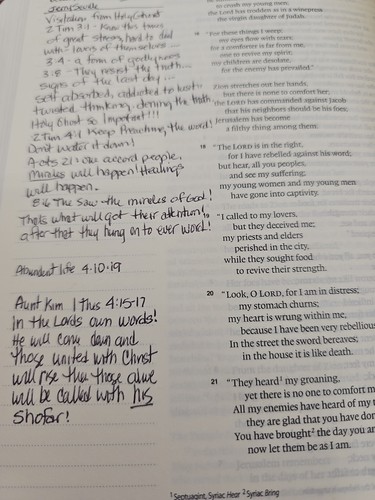 Visitation from Holy Ghost
2 Tim 3:1 - Know this times
of great stress, hard to deal
with - lovers of themselves
3:4 - a form of godliness
3:8 - They resist the truth...
signs of the last day...
self absorbed, addicted to lust
twisted thinking, denying the truth
Holy Ghost so important!!!
2 Tim 4:1 Keep Preaching, the word!
Don't water it down!
Acts 2:1 one accord people,
Miracles will happen! Healings
will happen.
8:6 The saw the miracles of God!
Thats what will get their attention!
after that they hung on to ever word!
Abundent life 4.10.19
Aunt Kim 1 Ths 4:15-17
in the Lords own words!
He will come down and
those united with Christ
will rise then those alive
will be called with his
Shofar!
to crush my young men;
the Lord has trodden as in a winepress
the virgin daughter of Judah.
16 "For these things I weep;
my eyes flow with tears;
for a comforter is far from me,
one to revive my spirit;
my children are desolate,
for the enemy has prevailed."
Zion stretches out her hands,
but there is none to comfort her;
the LORD has commanded against Jacob
that his neighbors should be his foes;
Jerusalem has become
a filthy thing among them.
18 "The LORD is in the right,
for I have rebelled against his word;
but hear, all you peoples,
and see my suffering;
my young women and my young men
have gone into captivity.
19 "I called to my lovers,
but they deceived me;
my priests and elders
perished in the city,
while they sought food
to revive their strength.
20 "Look, O LORD, for I am in distress;
my stomach churns;
my heart is wrung within me,
because I have been very rebellious
In the street the sword bereaves;
in the house it is like death.
21 "They heard1 my groaning,
yet there is no one to comfort m
All my enemies have heard of my t
they are glad that you have don
You have brought2 the day you an
now let them be as I am.
1 Septuagint, Syriac Hear 2 Syriac Bring